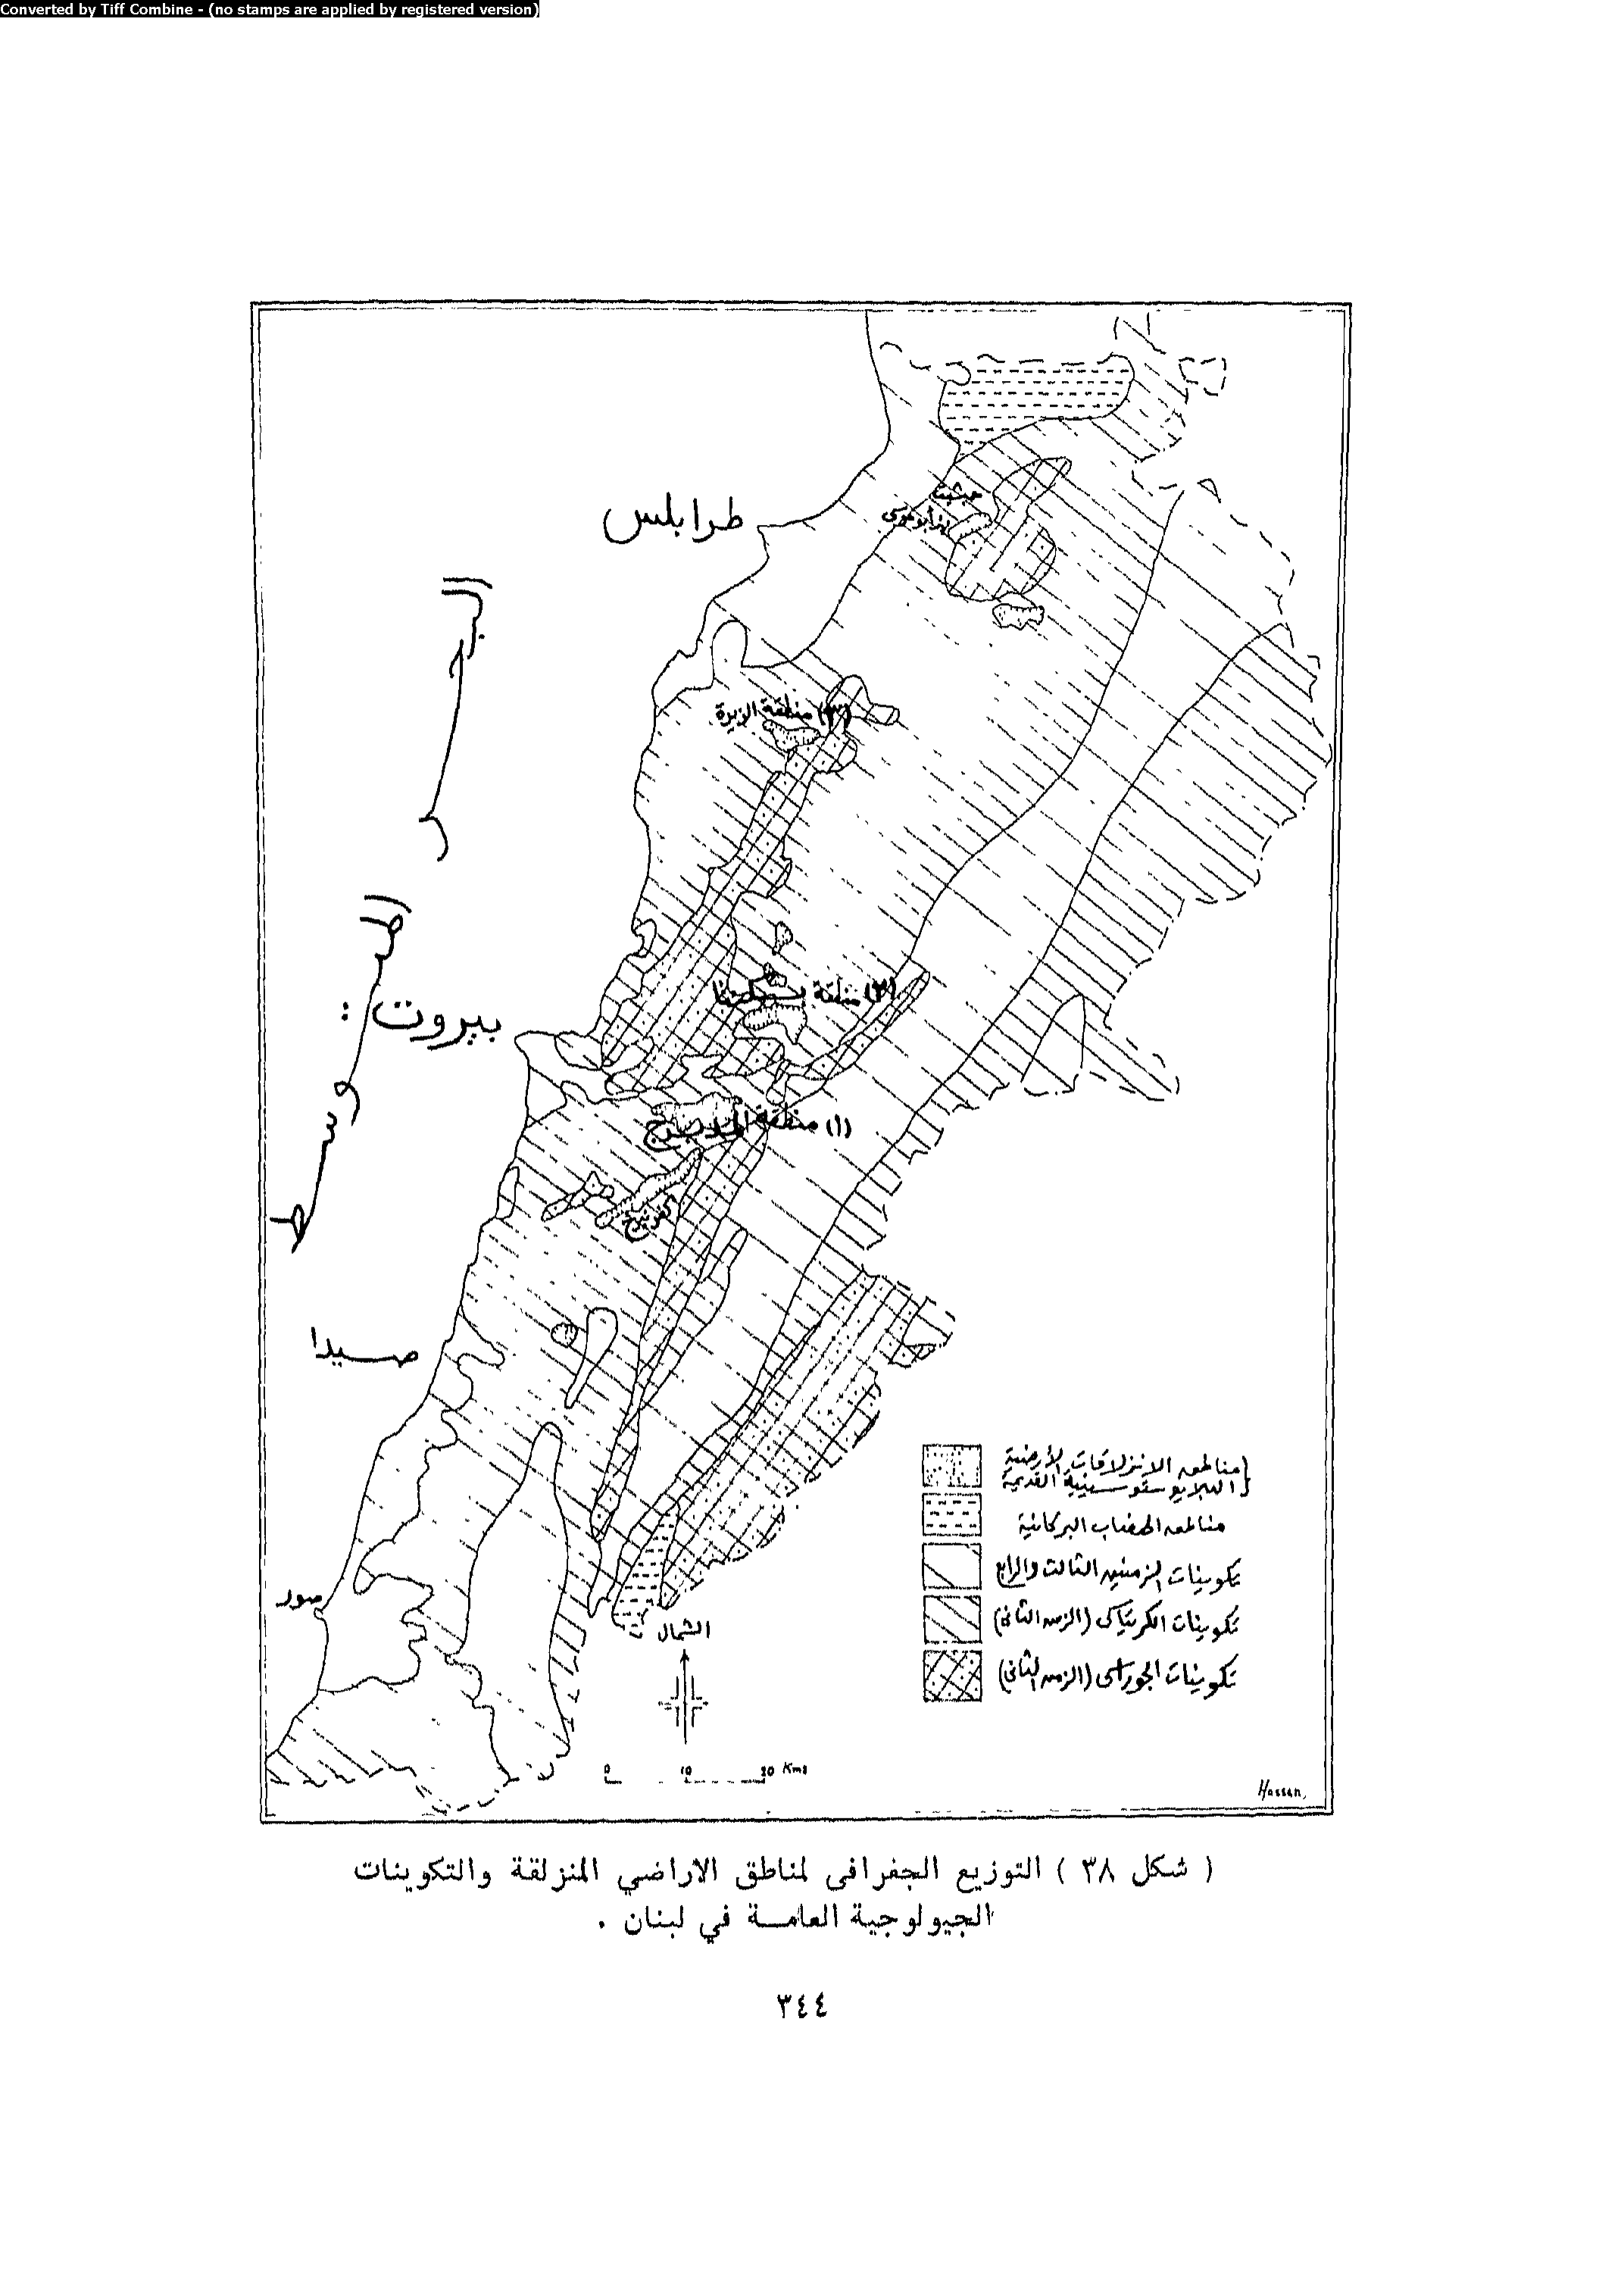 Converted by Tiff Combine - (no stamps are applied by registered version)
طرابلس
البحر
المتوسط
بيروت :
صيدا
صور
حبشيت
(٣) منطقة
(٢) منطقة بسكنتا
(١) منطقة المديرج
كفرنبرخ
مناطق الانزلاقات الأرضية
البلايوستوسينية القديمة
مناطق الهضاب البركانية
تكوينات الزمنين الثالث والرابع
تكوينات الكريتاسى (الزمن الثانى)
تكوينات الجوراسى (الزمن الثانى)
الشمال
0 10 20 Kms
Hassan,
( شكل ٣٨ ) التوزيع الجغرافى لمناطق الاراضي المنزلقة والتكوينات
الجيولوجية العامة في لبنان .
٣٤٤